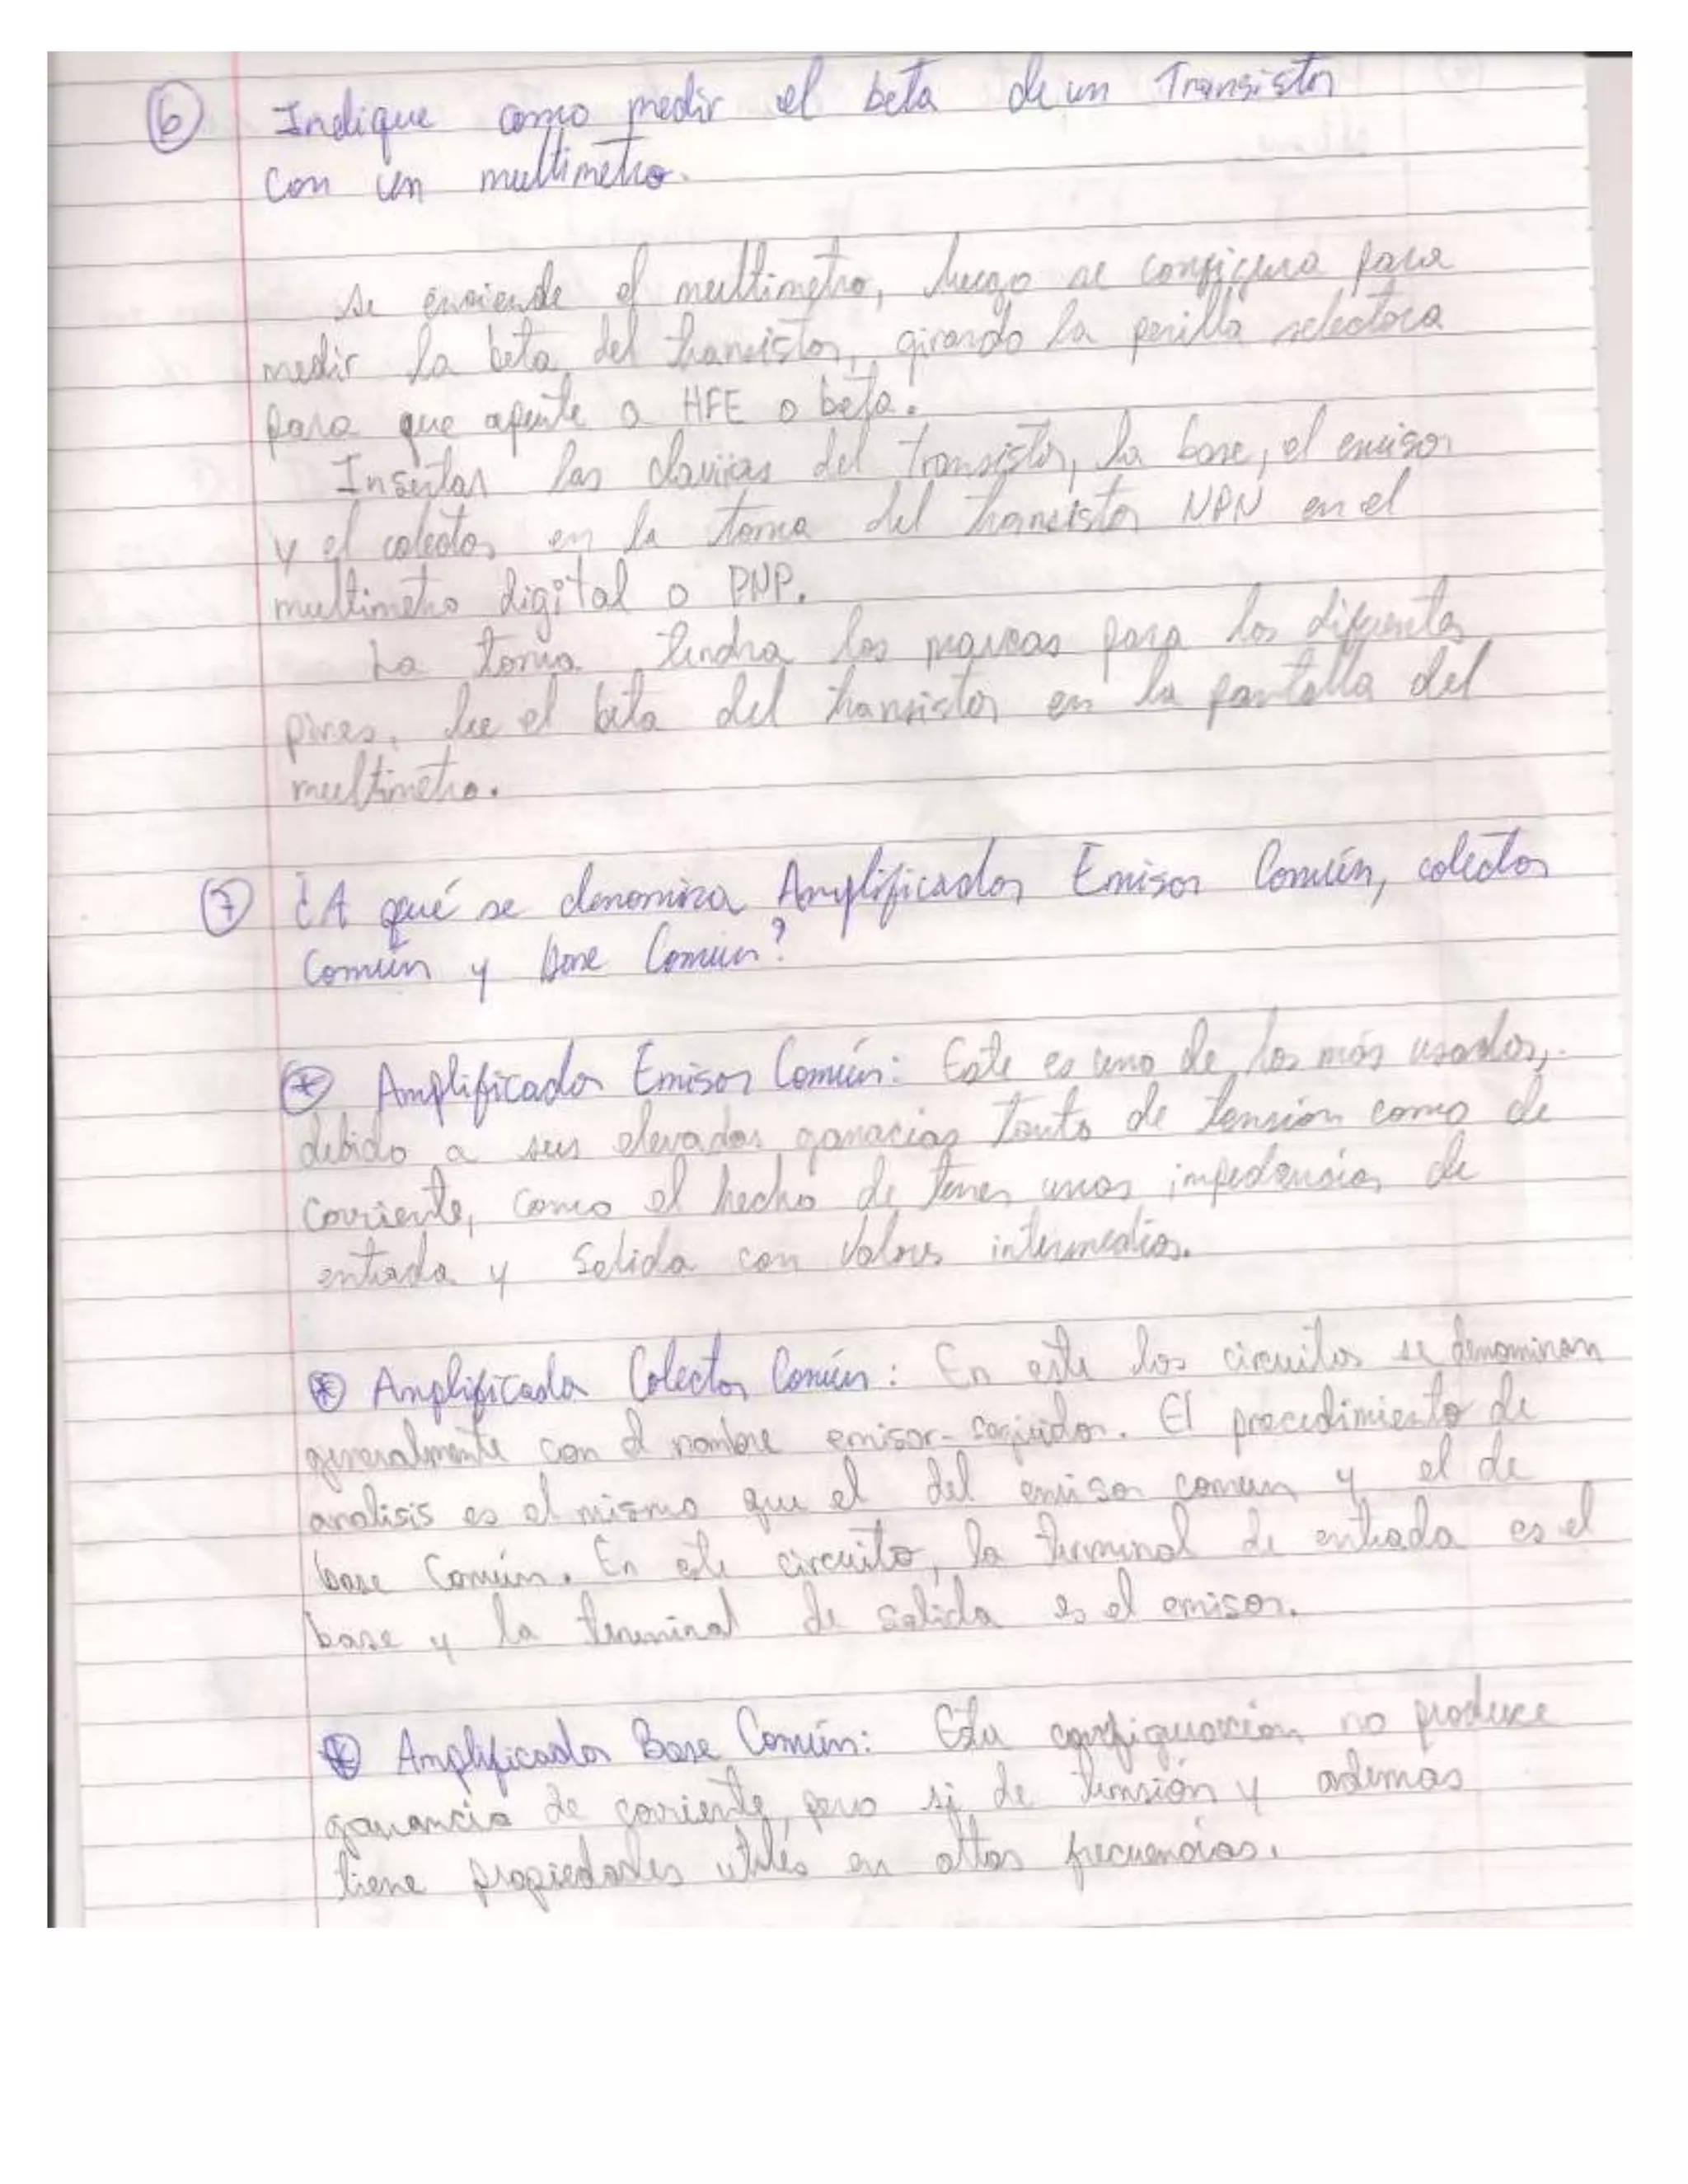 6 Indique como medir el beta de un Transistor
con un multimetro.
se enciende el multimetro, luego se configura para
medir la beta del transistor, girando la perilla selectora
para que apunte a HFE o beta.
Insertar las clavijas del transistor, la base, el emisor
y el colector en la toma del transistor NPN en el
multimetro digital o PNP.
La toma tendra las marcas para los diferentes
pines, lee el beta del transistor en la pantalla del
multimetro.
7 ¿A qué se denomina Amplificador Emisor Común, colector
Común y Base Común?
* Amplificador Emisor Común: Este es uno de los más usados,
debido a sus elevadas ganacias tanto de tensión como de
corriente, como el hecho de tener unas impedancias de
entrada y salida con valores intermedios.
* Amplificador Colector Común: En este los circuitos se denominan
generalmente con el nombre emisor-seguidor. El procedimiento de
analisis es el mismo que el del emisor comun y el de
base Común. En este circuito, la terminal de entrada es el
base y la terminal de salida es el emisor.
* Amplificador Base Común: Esta configuración no produce
ganancia de corriente, pero si de tensión y ademas
tiene propiedades utiles en altas frecuencias.